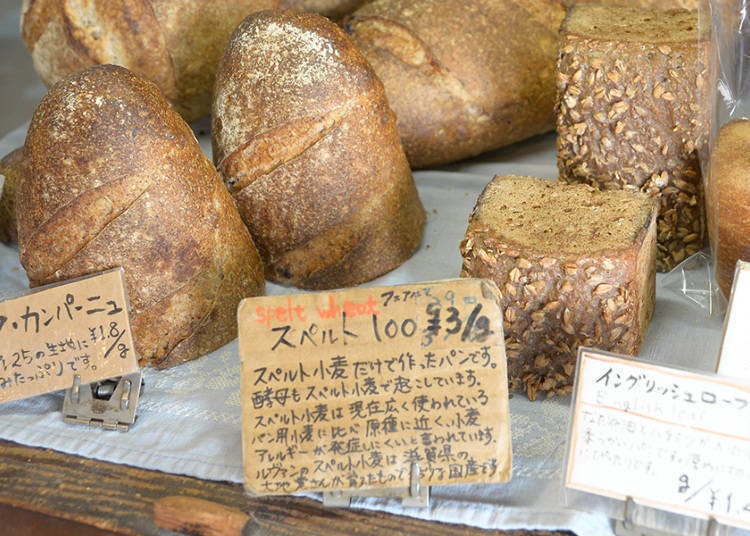 ・カンパーニュ
25の生地に ¥1.8/g
たっぷりです。
spelt wheat
スペルト 100 ¥3/g
スペルト小麦だけで作ったパンです。
酵母もスペルト小麦で起こしています。
スペルト小麦は現在広く使われている
パン用小麦に比べ原種に近く、小麦
アレルギーが発症しにくいと言われています。
ルヴァンのスペルト小麦は滋賀県の
さんが育てたもので 国産です
イングリッシュローフ
English loaf
g/¥1.